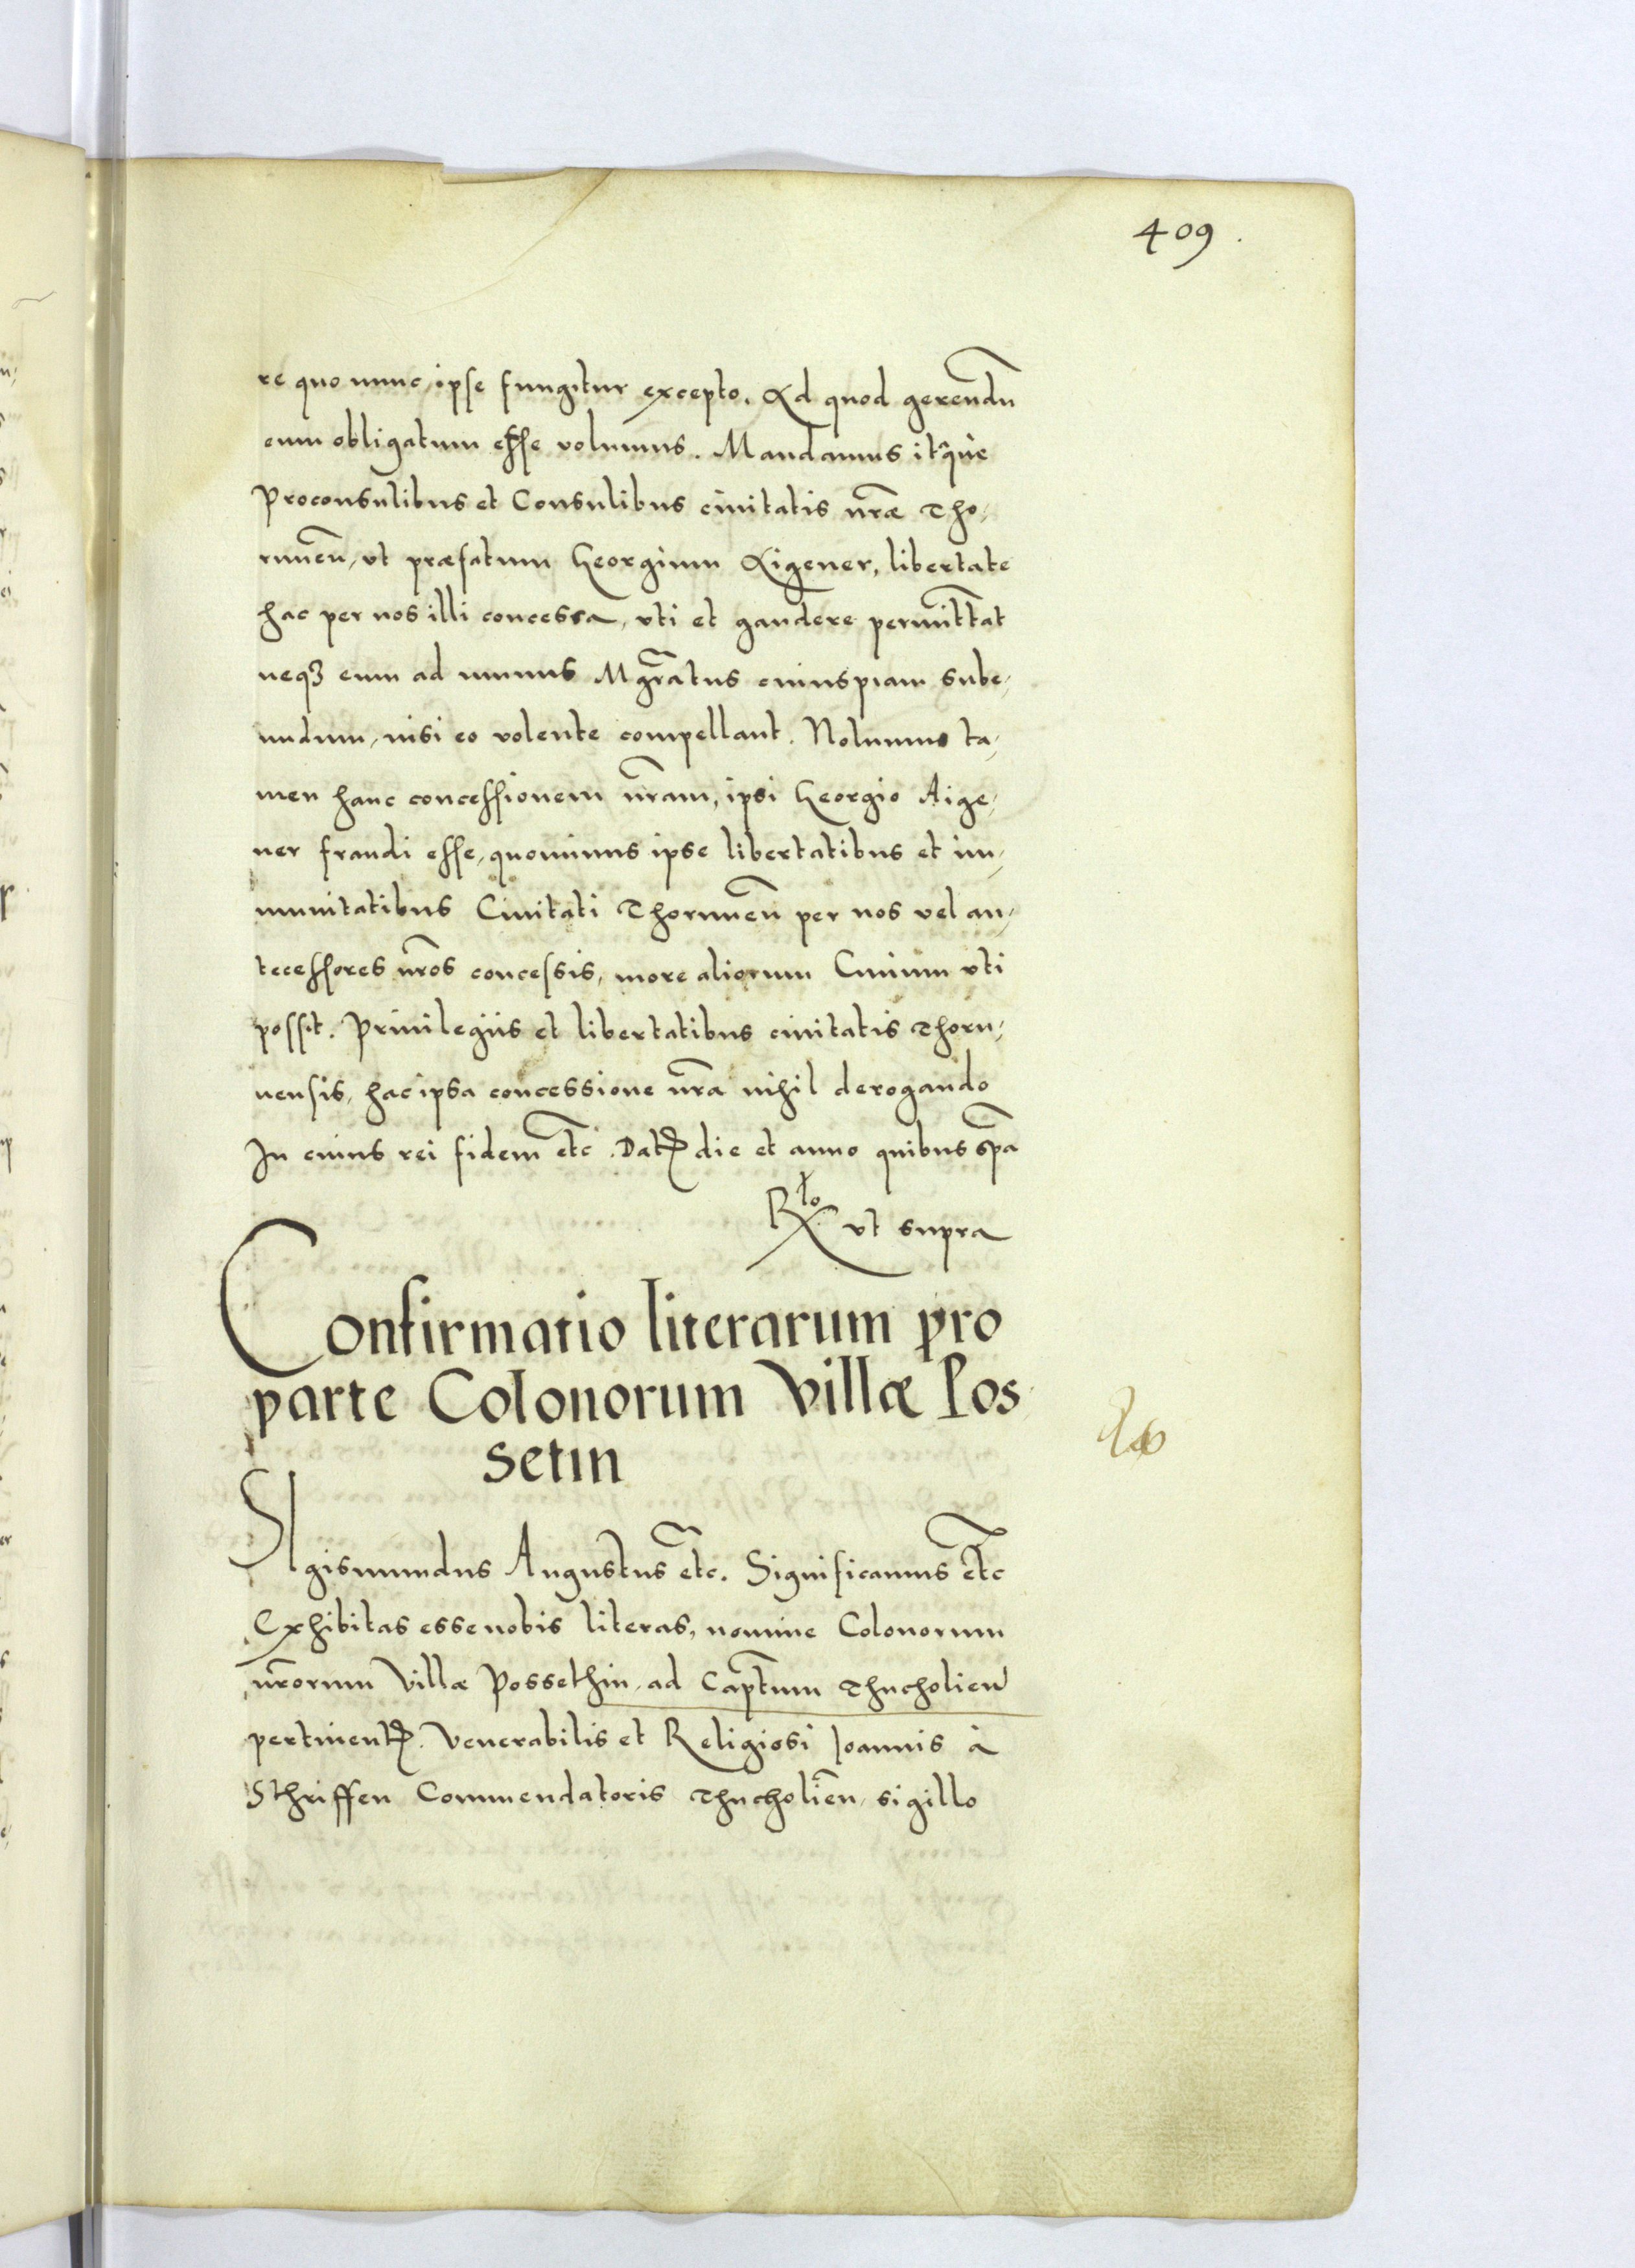 409.
re quo nunc ipse fungitur excepto. Ad quod gerendũ
eum obligatum esse volumus. Mandamus itq̃ue
Proconsulibus et Consulibus ciuitatis nr̃æ Tho,
runeñ, vt præfatum Georgium Aigener, libertate
hac per nos illi concessa, vti et gaudere permittãt
neqꝫ eum ad munus Mgr̃atus cuiuspiam sube,
undum, nisi eo volente compellant. Nolumus ta,
men hanc concessionem nr̃am, ipsi Georgio Aige,
ner fraudi esse, quominus ipse libertatibus et im,
munitatibus Ciuitati Thoruneñ per nos vel an,
tecessores nr̃os concessis, more aliorum Ciuium vti
possit. Priuilegijs et libertatibus ciuitatis Thoru,
nensis, hac ipsa concessione nr̃a nihil derogando
In cuius rei fidem etc̃. Datꝝ die et anno quibus sp̃a
Rlo vt supra
Confirmatio literarum pro
parte Colonorum Villæ Pos,
setin
SIgismundus Augustus etc̃. Significamus etc̃
Exhibitas esse nobis literas, nomine Colonorum
nr̃orum Villæ Possethin, ad Capt̃um Thucholieñ
pertinentꝝ. Venerabilis et Religiosi Ioannis à
Sthriffen Commendatoris Thucholieñ, sigillo